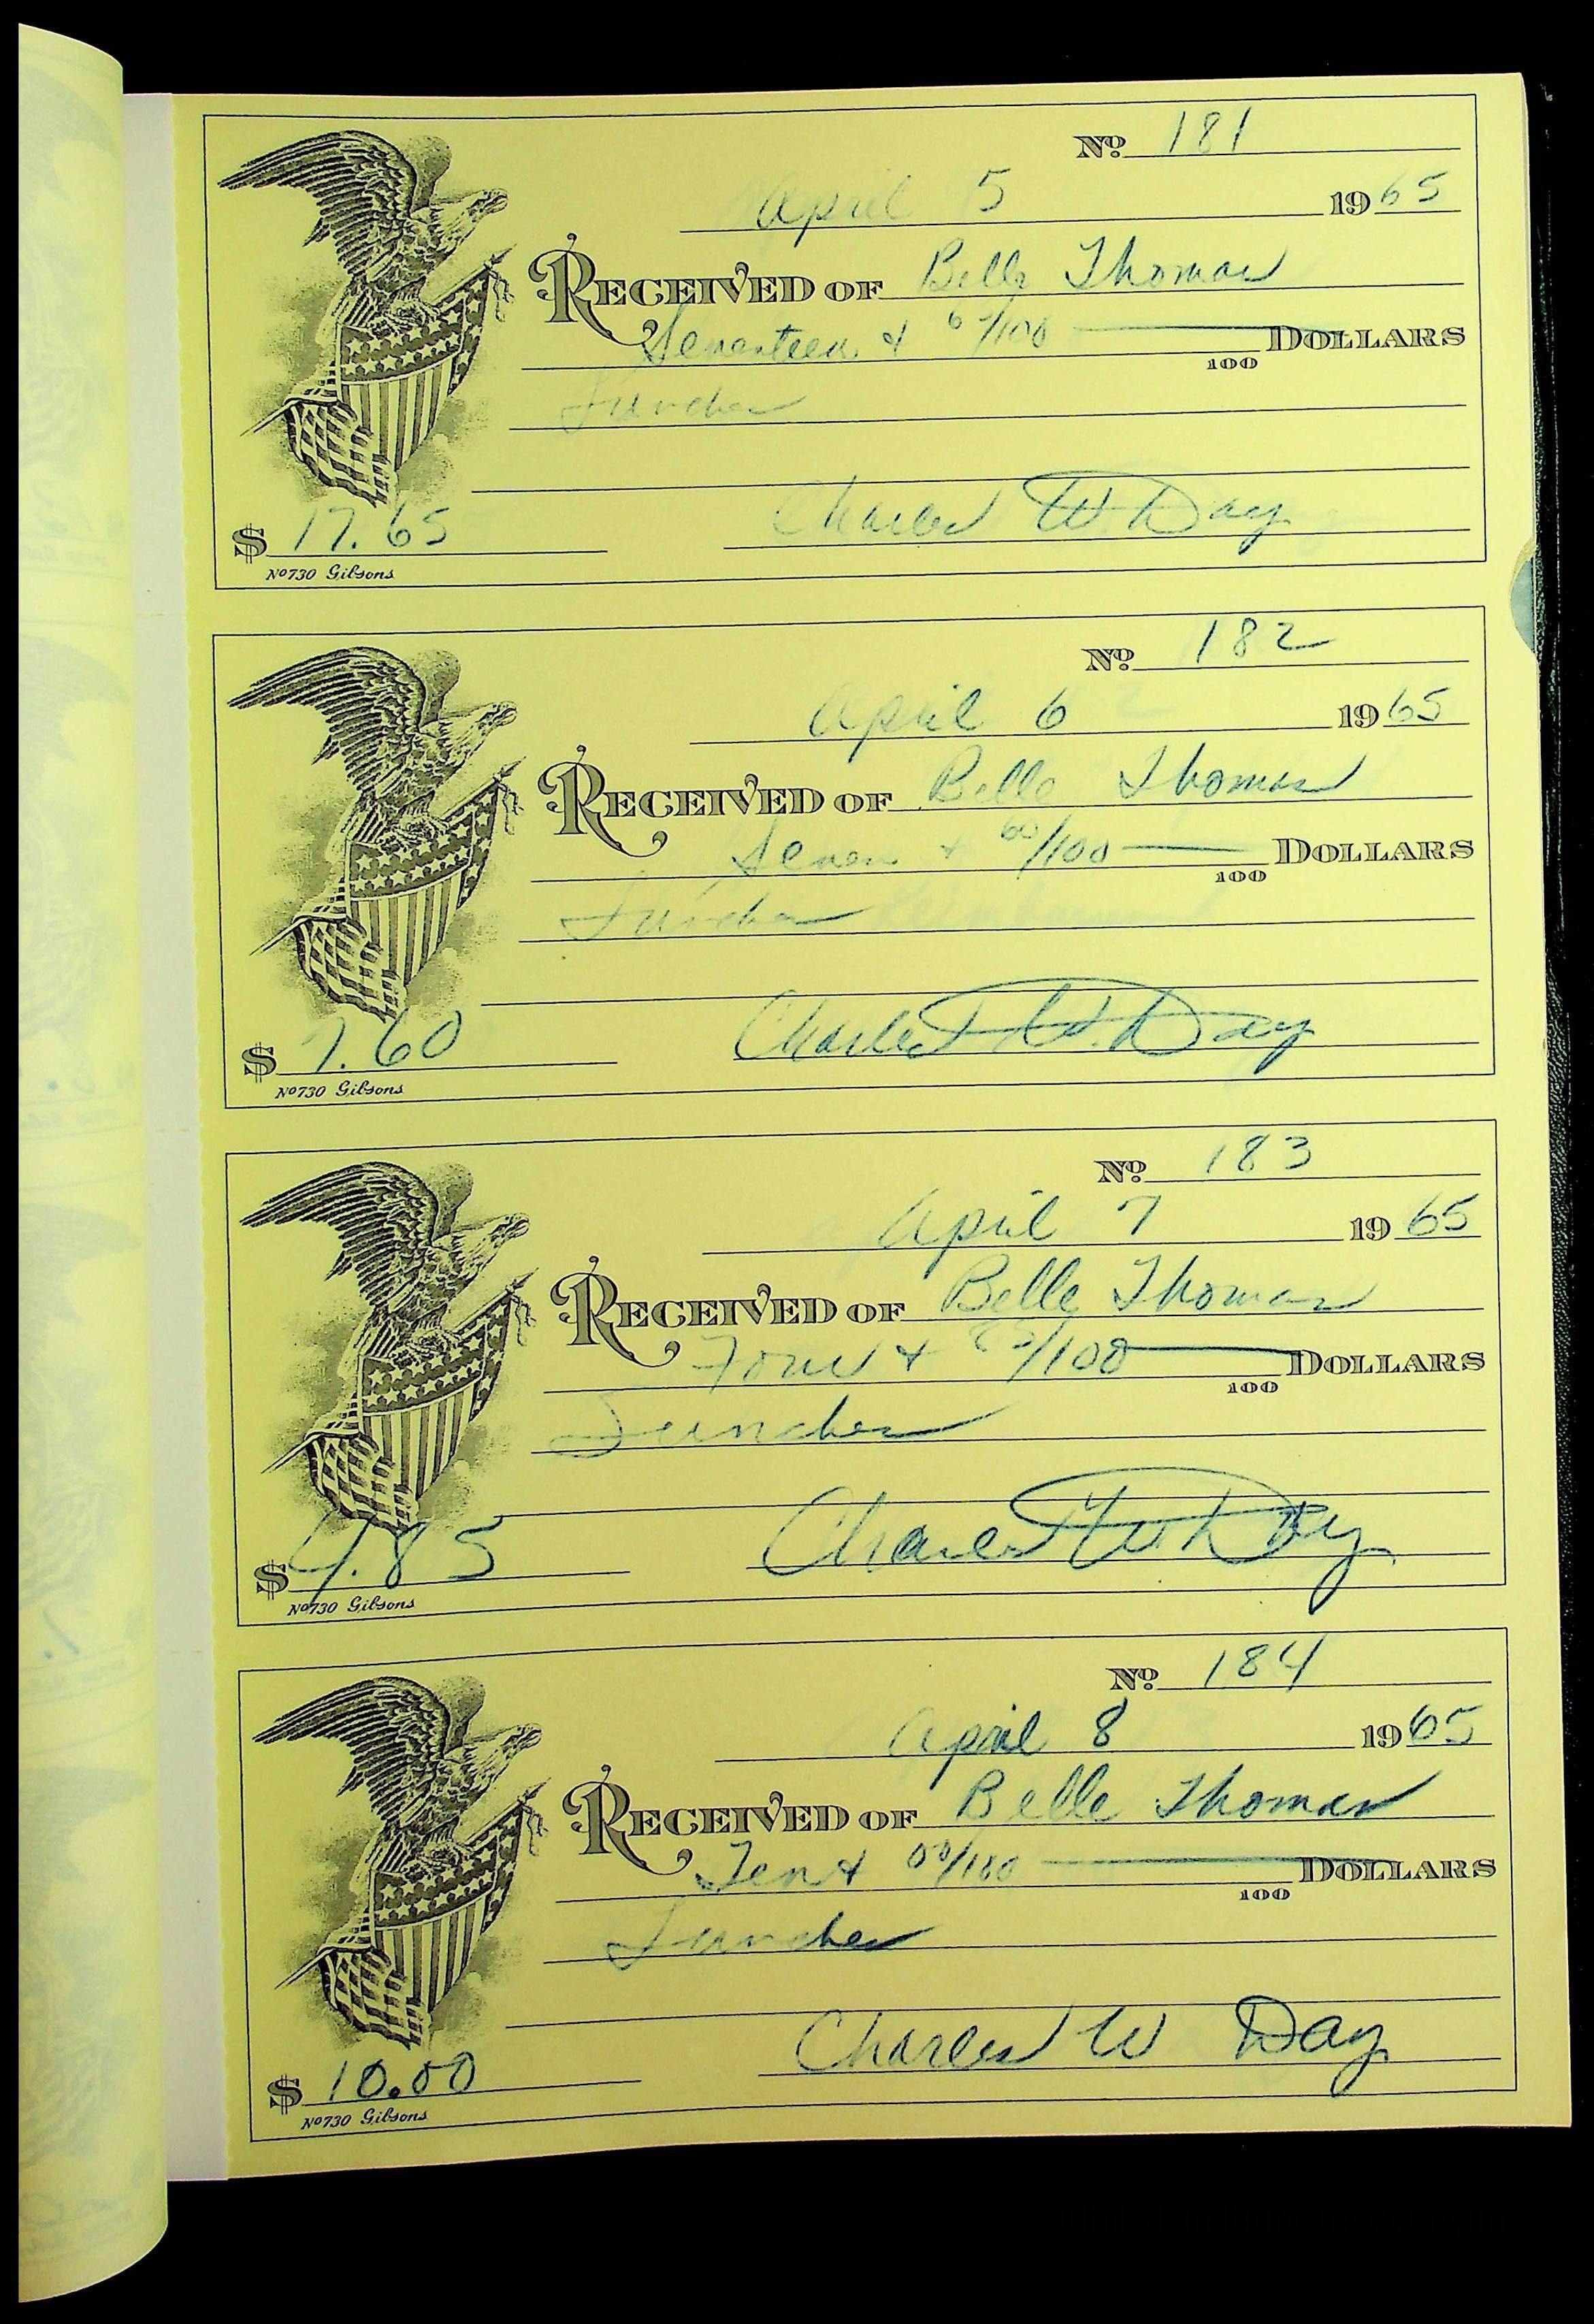 Nº 181
April 5 1965
RECEIVED OF Belle Thomas
Seventeen & 65/100 DOLLARS
100
Lunches
Charles W. Day
$ 17.65
Nº 730 Gibsons
Nº 182
April 6 1965
RECEIVED OF Belle Thomas
Seven + 60/100 DOLLARS
100
Lunches
Charles W. Day
$ 7.60
Nº 730 Gibsons
Nº 183
April 7 1965
RECEIVED OF Belle Thomas
Four + 85/100 DOLLARS
100
Lunches
Charles W. Day
$ 4.85
Nº 730 Gibsons
Nº 184
April 8 1965
RECEIVED OF Belle Thomas
Ten & 00/100 DOLLARS
100
Lunches
Charles W Day
$ 10.00
Nº 730 Gibsons